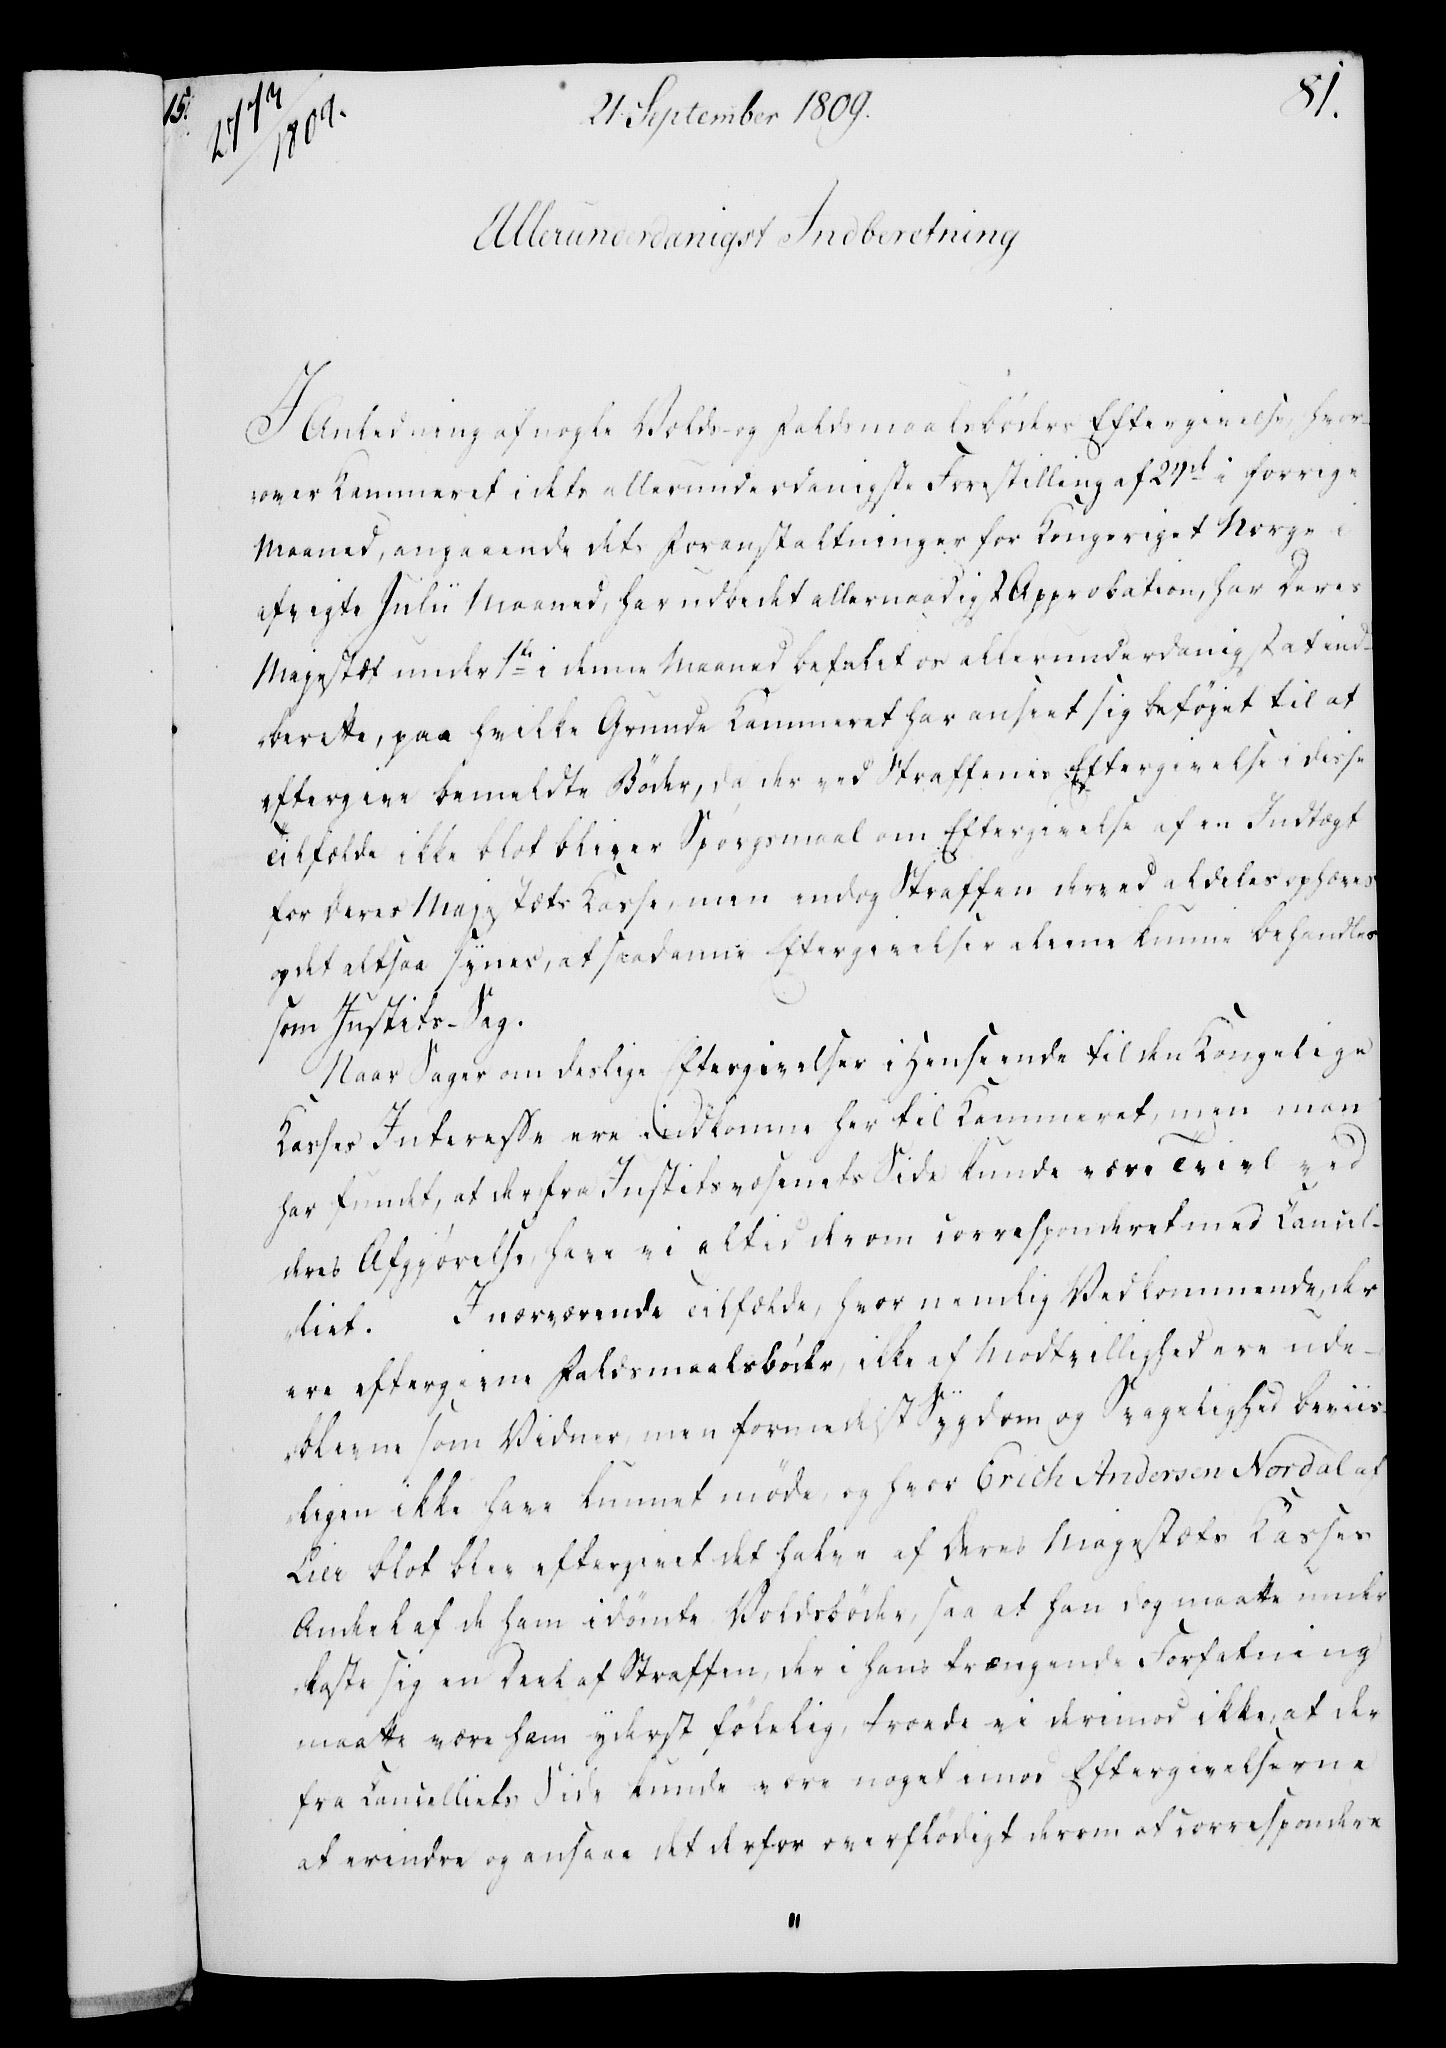 15.
2773
1809.
21 September 1809.
81.
Allerunderdanigst Indberetning
I Anledning af nogle Volds- og Faldsmaalsbøders Eftergivelse, hvor-
over Kammeret i dets allerunderdanigste Forestilling af 27de i forrige
Maaned, angaaende dets Foranstaltninger for Kongeriget Norge i
afvigte Julii Maaned, har udbedet allernaadigst Approbation, har Deres
Majestæt under 1ste i denne Maaned befalet os allerunderdanigst at ind-
berette, paa hvilke Grunde Kammeret har anseet sig beføjet til at
eftergive bemeldte Bøder, da der ved Straffenes Eftergivelse i disse
Tilfælde ikke blot bliver Spørgsmaal om Eftergivelse af en Indtægt
for Deres Majestæts Kasse, men endog Straffen derved aldeles ophæves
og det altsaa synes, at saadanne Eftergivelser alene kunne behandles
som Justits-Sag.
Naar Sager om deslige Eftergivelser i Henseende til den Kongelige
Kasses Interesse ere indkomne her til Kammeret, men man
har fundet, at der fra Justitsvæsenets Side kunde være Tvivl ved
deres Afgjørelse, have vi altid derom corresponderet med Cancel-
liet. I nærværende Tilfælde, hvor nemlig Vedkommende, der
ere eftergivne Faldsmaalsbøder, ikke af Modtvillighed ere ude-
blevne som Vidner, men formedelst Sygdom og Svagelighed beviis-
ligen ikke have kunnet møde, og hvor Erich Andersen Nordal af
Lier blot blev eftergivet det halve af Deres Majestæts Kasses
Andeel af de ham idømte Voldsbøder, saa at han dog maatte under
kaste sig en Deel af Straffen, der i hans trængende Forfatning
maatte være ham yderst følelig, troede vi derimod ikke, at der
fra Cancelliets Side kunde være noget imod Eftergivelserne
at erindre og ansaae det derfor overflødigt derom at correspondere
"